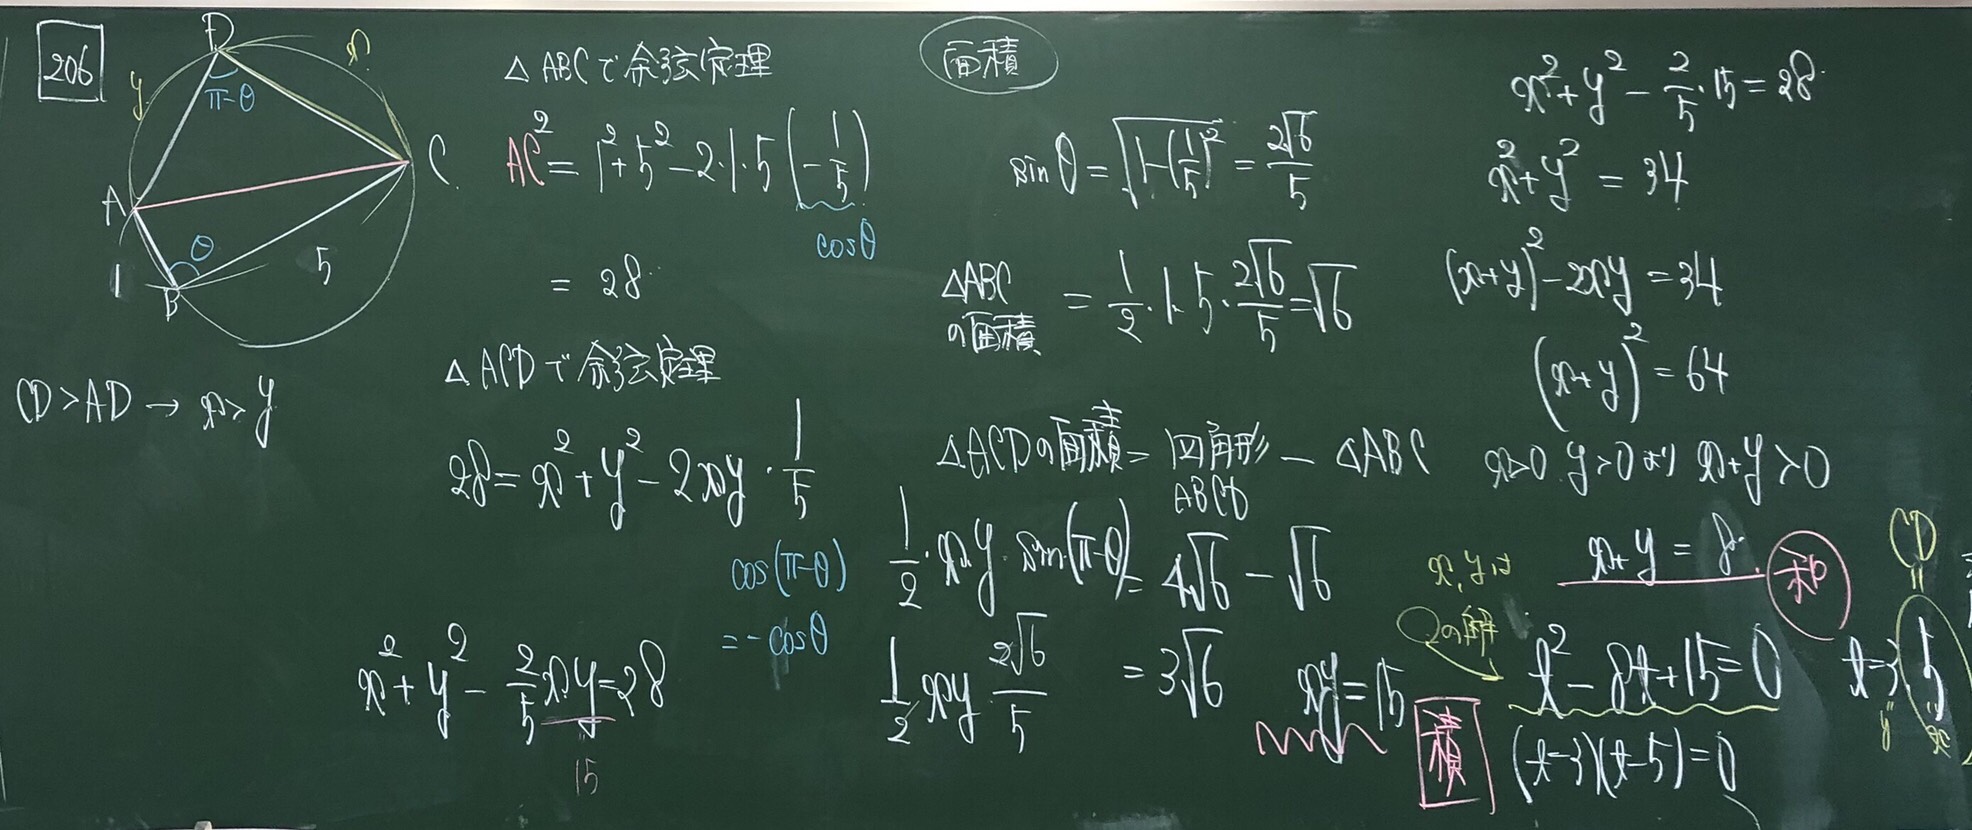 206
D
x
y
π-θ
A
C
θ
1
B
5
CD>AD → x>y
△ABCで余弦定理
AC²=1²+5²-2·1·5(-1/5)
cosθ
= 28
△ACDで余弦定理
28=x²+y²-2xy·1/5
cos(π-θ)
=-cosθ
x²+y²-2/5xy=28
15
面積
sinθ=√(1-(1/5)²)=2√6/5
△ABC
の面積
=1/2·1·5·2√6/5=√6
△ACDの面積=四角形-△ABC
ABCD
1/2·xy·sin(π-θ)=4√6-√6
1/2xy 2√6/5=3√6
xy=15
積
x²+y²-2/5·15=28
x²+y²=34
(x+y)²-2xy=34
(x+y)²=64
x>0 y>0より x+y>0
x+y=8
和
x,yは
2の解
t²-8t+15=0
(t-3)(t-5)=0
CD
=
t=3,5
y
x